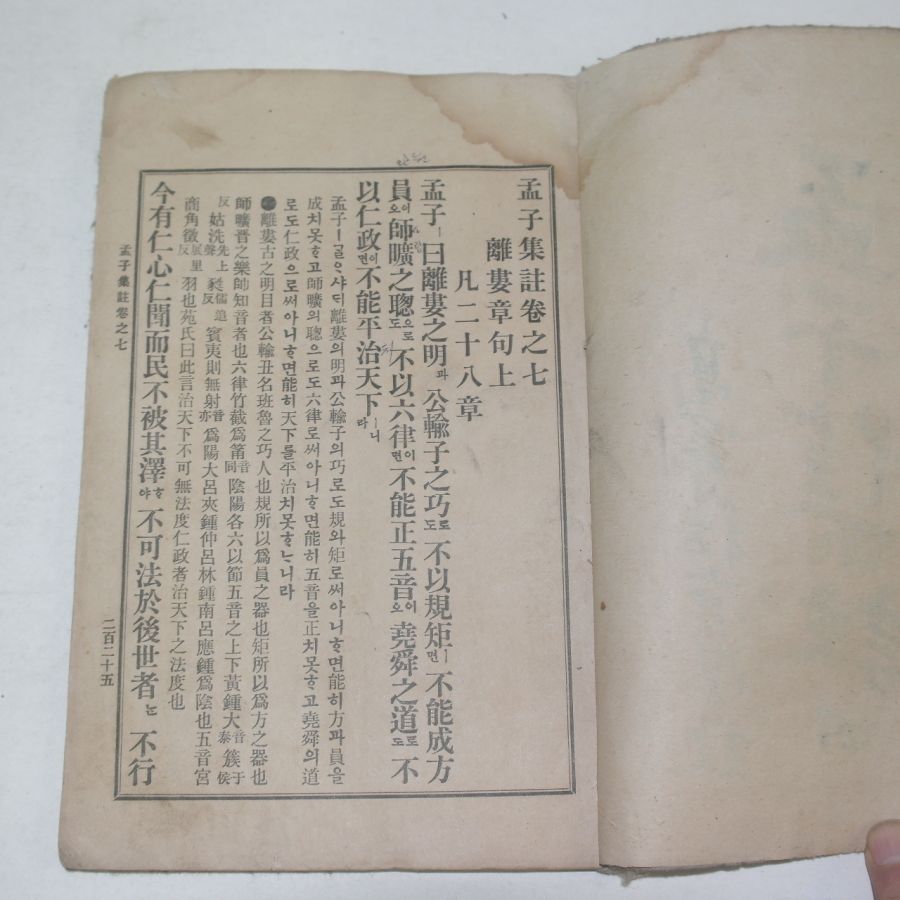 孟子集註卷之七
離婁章句上
凡二十八章
孟子ㅣ曰離婁之明과公輸子之巧로도不以規矩ㅣ면不能成方
員이오師曠之聰으로도不以六律이면不能正五音이오堯舜之道로도不
以仁政이면不能平治天下ㅣ니라
孟子ㅣᄀᆞᆯᄋᆞ샤ᄃᆡ離婁의明과公輸子의巧로도規와矩로써아니ᄒᆞ면能히方과員을
成치못ᄒᆞ고師曠의聰으로도六律로써아니ᄒᆞ면能히五音을正치못ᄒᆞ고堯舜의道
로도仁政으로써아니ᄒᆞ면能히天下를平治치못ᄒᆞᄂᆞ니라
●離婁古之明目者公輸丑名班魯之巧人也規所以爲員之器也矩所以爲方之器也
師曠晋之樂師知音者也六律竹截爲筩音同陰陽各六以節五音之上下黃鍾大音泰簇于候
反姑洗先上聲蕤儒追反賓夷則無射音亦爲陽大呂夾鍾仲呂林鍾南呂應鍾爲陰也五音宮
商角徵展里反羽也范氏曰此言治天下不可無法度仁政者治天下之法度也
今有仁心仁聞而民不被其澤ᄒᆞ야不可法於後世者ᄂᆞᆫ不行
孟子集註卷之七
二百二十五